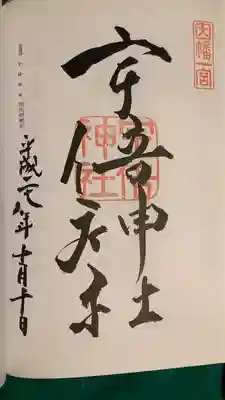 因幡一宮
宇倍神社
宇倍神社
平成廿八年十月十日